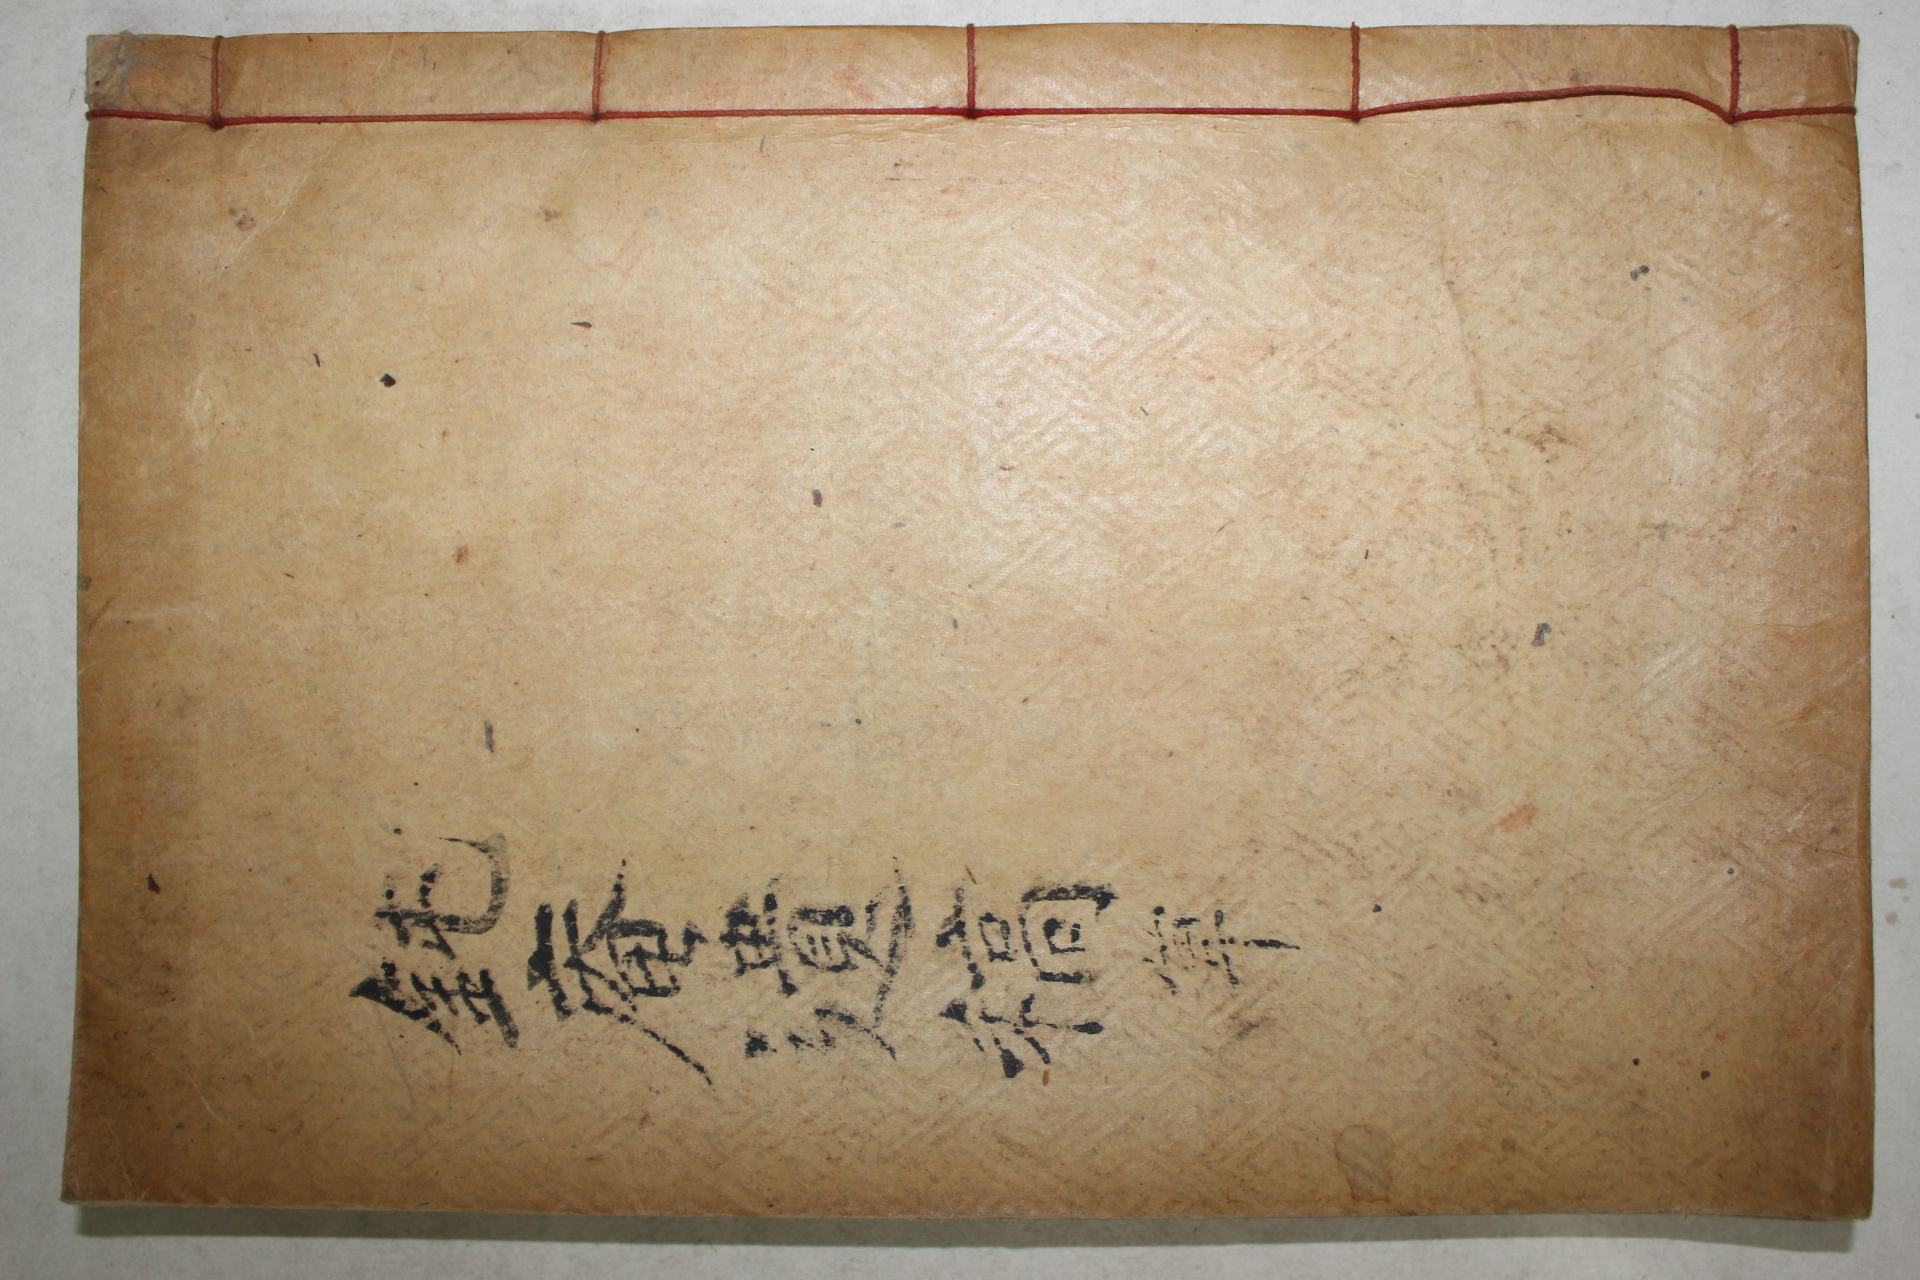 鈍庵遺稿 單